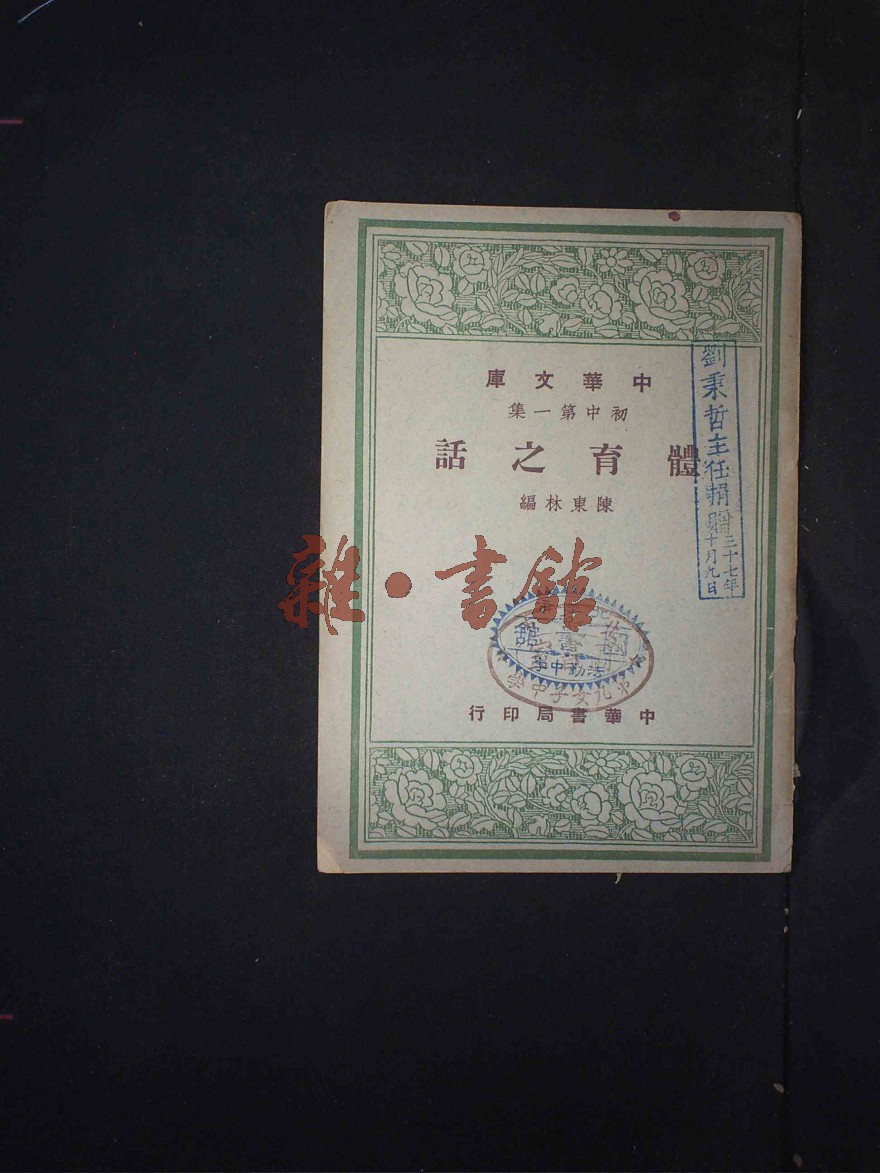 中華文庫
初中第一集
體育之話
陳東林編
中華書局印行
劉秉哲主任捐贈
三十七年
十月九日
雜·書館
勤中學
第九女子中學